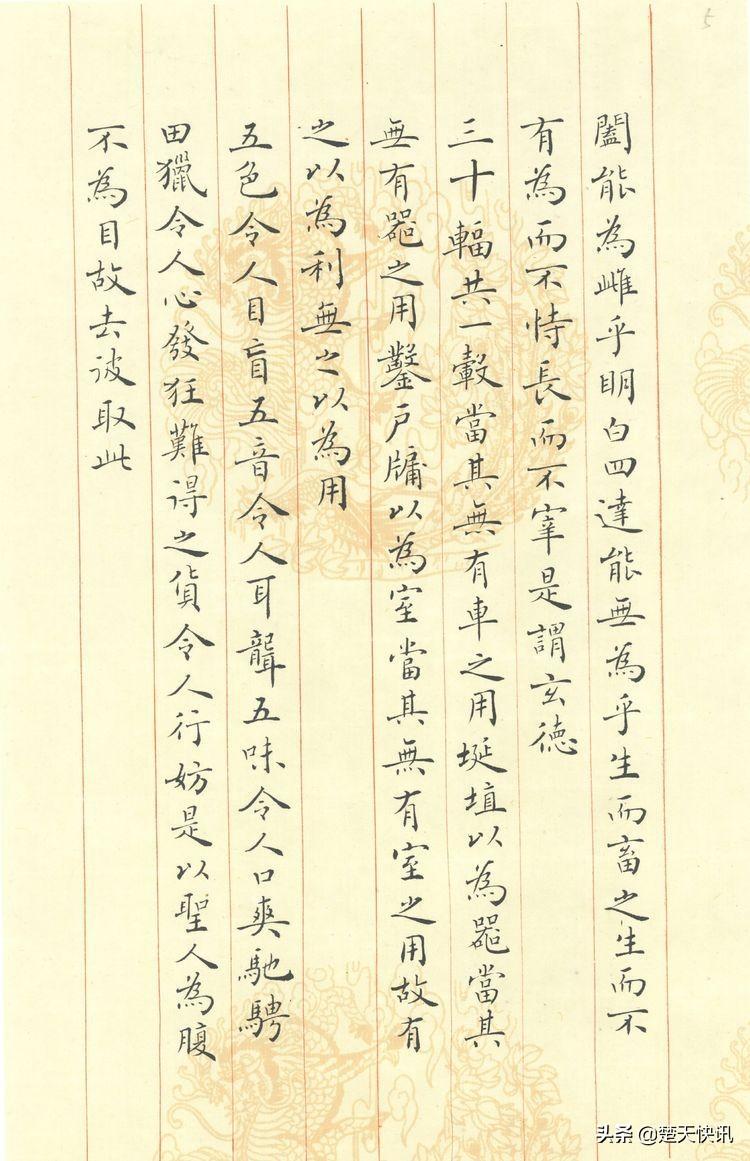 5
闔能為雌乎明白四達能無為乎生而畜之生而不
有為而不恃長而不宰是謂玄德
三十輻共一轂當其無有車之用埏埴以為器當其
無有器之用鑿戶牖以為室當其無有室之用故有
之以為利無之以為用
五色令人目盲五音令人耳聾五味令人口爽馳騁
田獵令人心發狂難得之貨令人行妨是以聖人為腹
不為目故去彼取此
头条 @楚天快讯